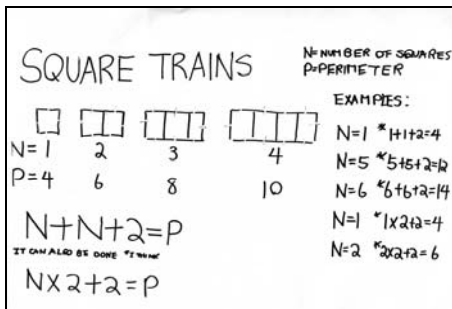 SQUARE TRAINS
N=NUMBER OF SQUARES
P=PERIMETER
N=1 2 3 4
P=4 6 8 10
N+N+2=P
IT CAN ALSO BE DONE *I THINK
NX2+2=P
EXAMPLES:
N=1 *1+1+2=4
N=5 *5+5+2=12
N=6 *6+6+2=14
N=1 *1X2+2=4
N=2 *2X2+2=6